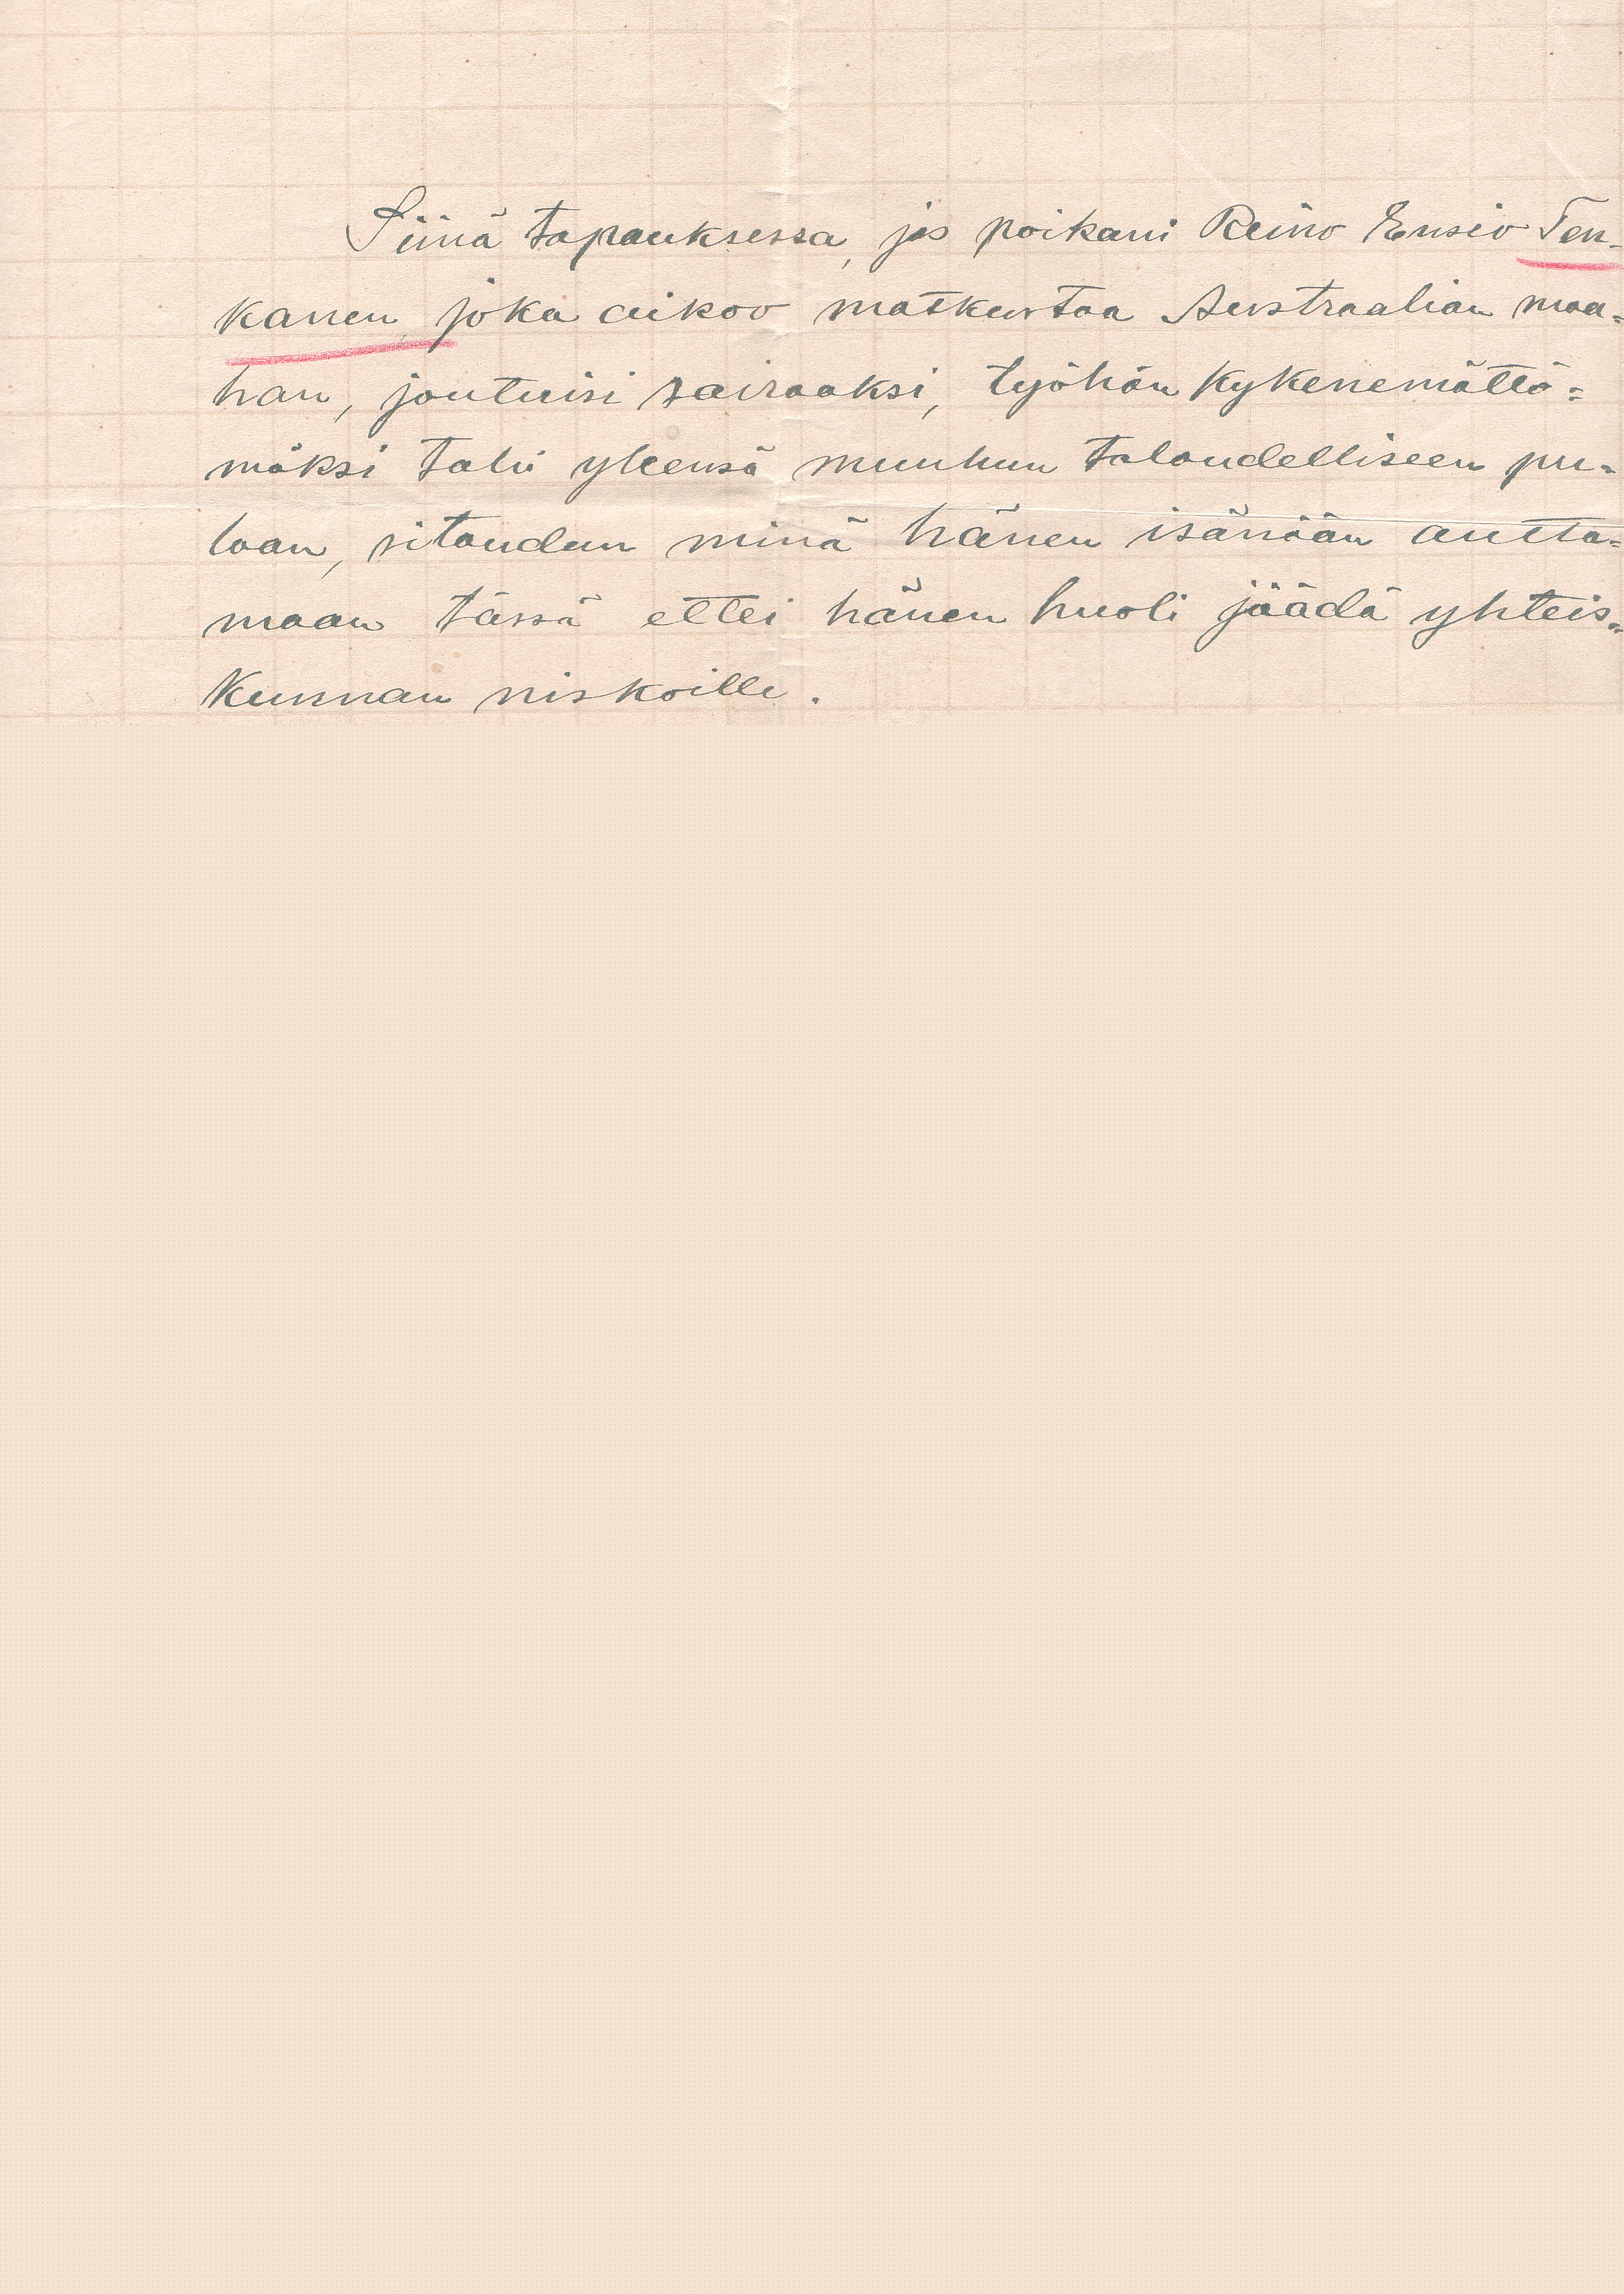 Siinä tapauksessa, jos poikani Reino Ensio Ten-
kanen, joka aikoo matkustaa Austraalian maa=
han, joutuisi sairaaksi, työhön kykenemättö=
mäksi tahi yleensä muuhun taloudelliseen pu=
laan, sitoudun minä hänen isänään autta=
maan tässä ettei hänen huoli jäädä yhteis=
kunnan niskoille.